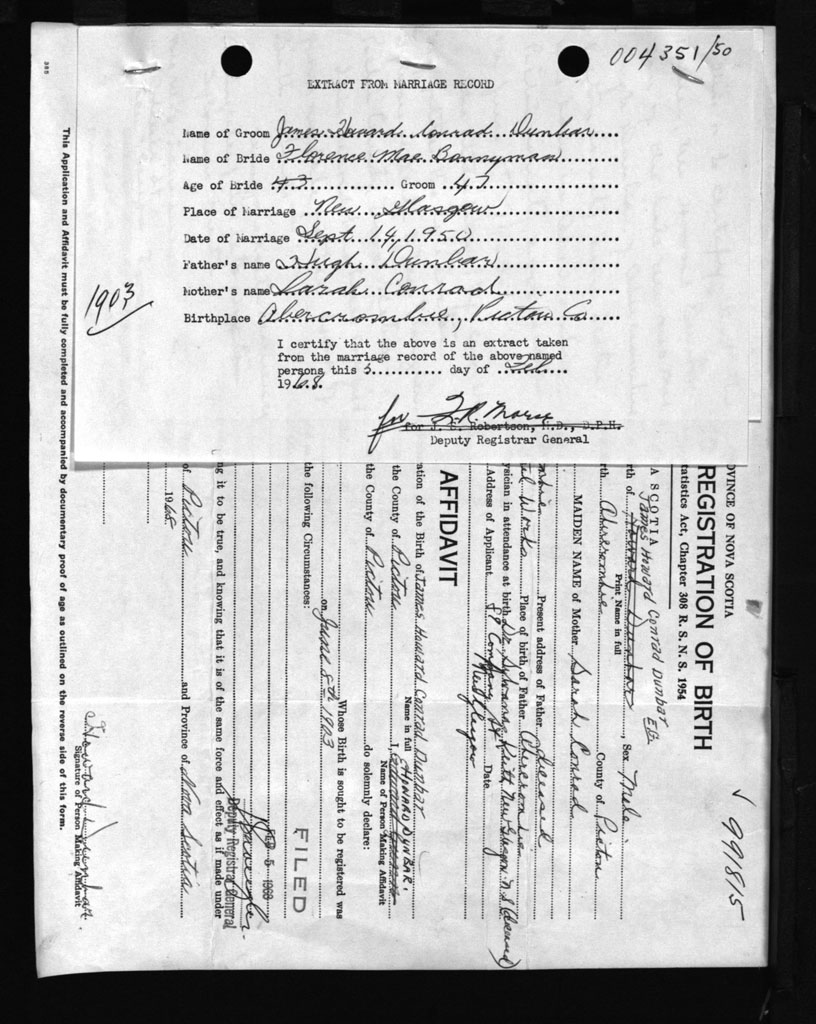 004351/50
EXTRACT FROM MARRIAGE RECORD
Name of Groom James Howard Conrad Dunbar
Name of Bride Florence Mae Bannyman
Age of Bride 43 Groom 47
Place of Marriage New Glasgow
Date of Marriage Sept 14, 1950
Father's name Hugh Dunbar
Mother's name Sarah Conrad
Birthplace Abercrombie, Pictou Co
1903
I certify that the above is an extract taken
from the marriage record of the above named
persons this 5 day of Feb
1968.
for
for J. S. Robertson, M.D., D.P.H.
Deputy Registrar General
385
This Application and Affidavit must be fully completed and accompanied by documentary proof of age as outlined on the reverse side of this form.
991815
OVINCE OF NOVA SCOTIA
REGISTRATION OF BIRTH
tatistics Act, Chapter 308 R. S. N. S. 1954
A SCOTIA
James Howard Conrad Dunbar
rth of Howard Dunbar, Sex Male
Print Name in full
rth Abercrombie County of Pictou
MAIDEN NAME of Mother Sarah Conrad
Present address of Father Deceased
Works Place of birth of Father Abercrombie
ysician in attendance at birth Dr. Keith, New Glasgow N.S.
Address of Applicant Date
AFFIDAVIT
ation of the Birth of James Howard Conrad Dunbar
Name in full
the County of Pictou I, HOWARD DUNBAR,
Name of Person Making Affidavit
the County of Pictou do solemnly declare:
Whose Birth is sought to be registered was
on June 8th 1903
the following Circumstances:
FILED
FEB 5 1968
Deputy Registrar General
ng it to be true, and knowing that it is of the same force and effect as if made under
of Pictou and Province of Nova Scotia
1968.
Howard Dunbar.
Signature of Person Making Affidavit